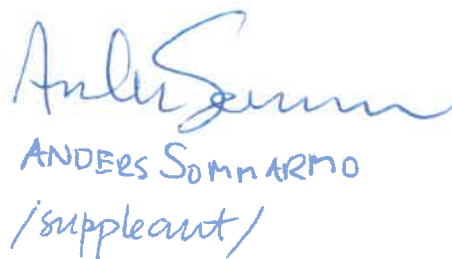 Anders Sommarmo
ANDERS SOMMARMO
/suppleant/